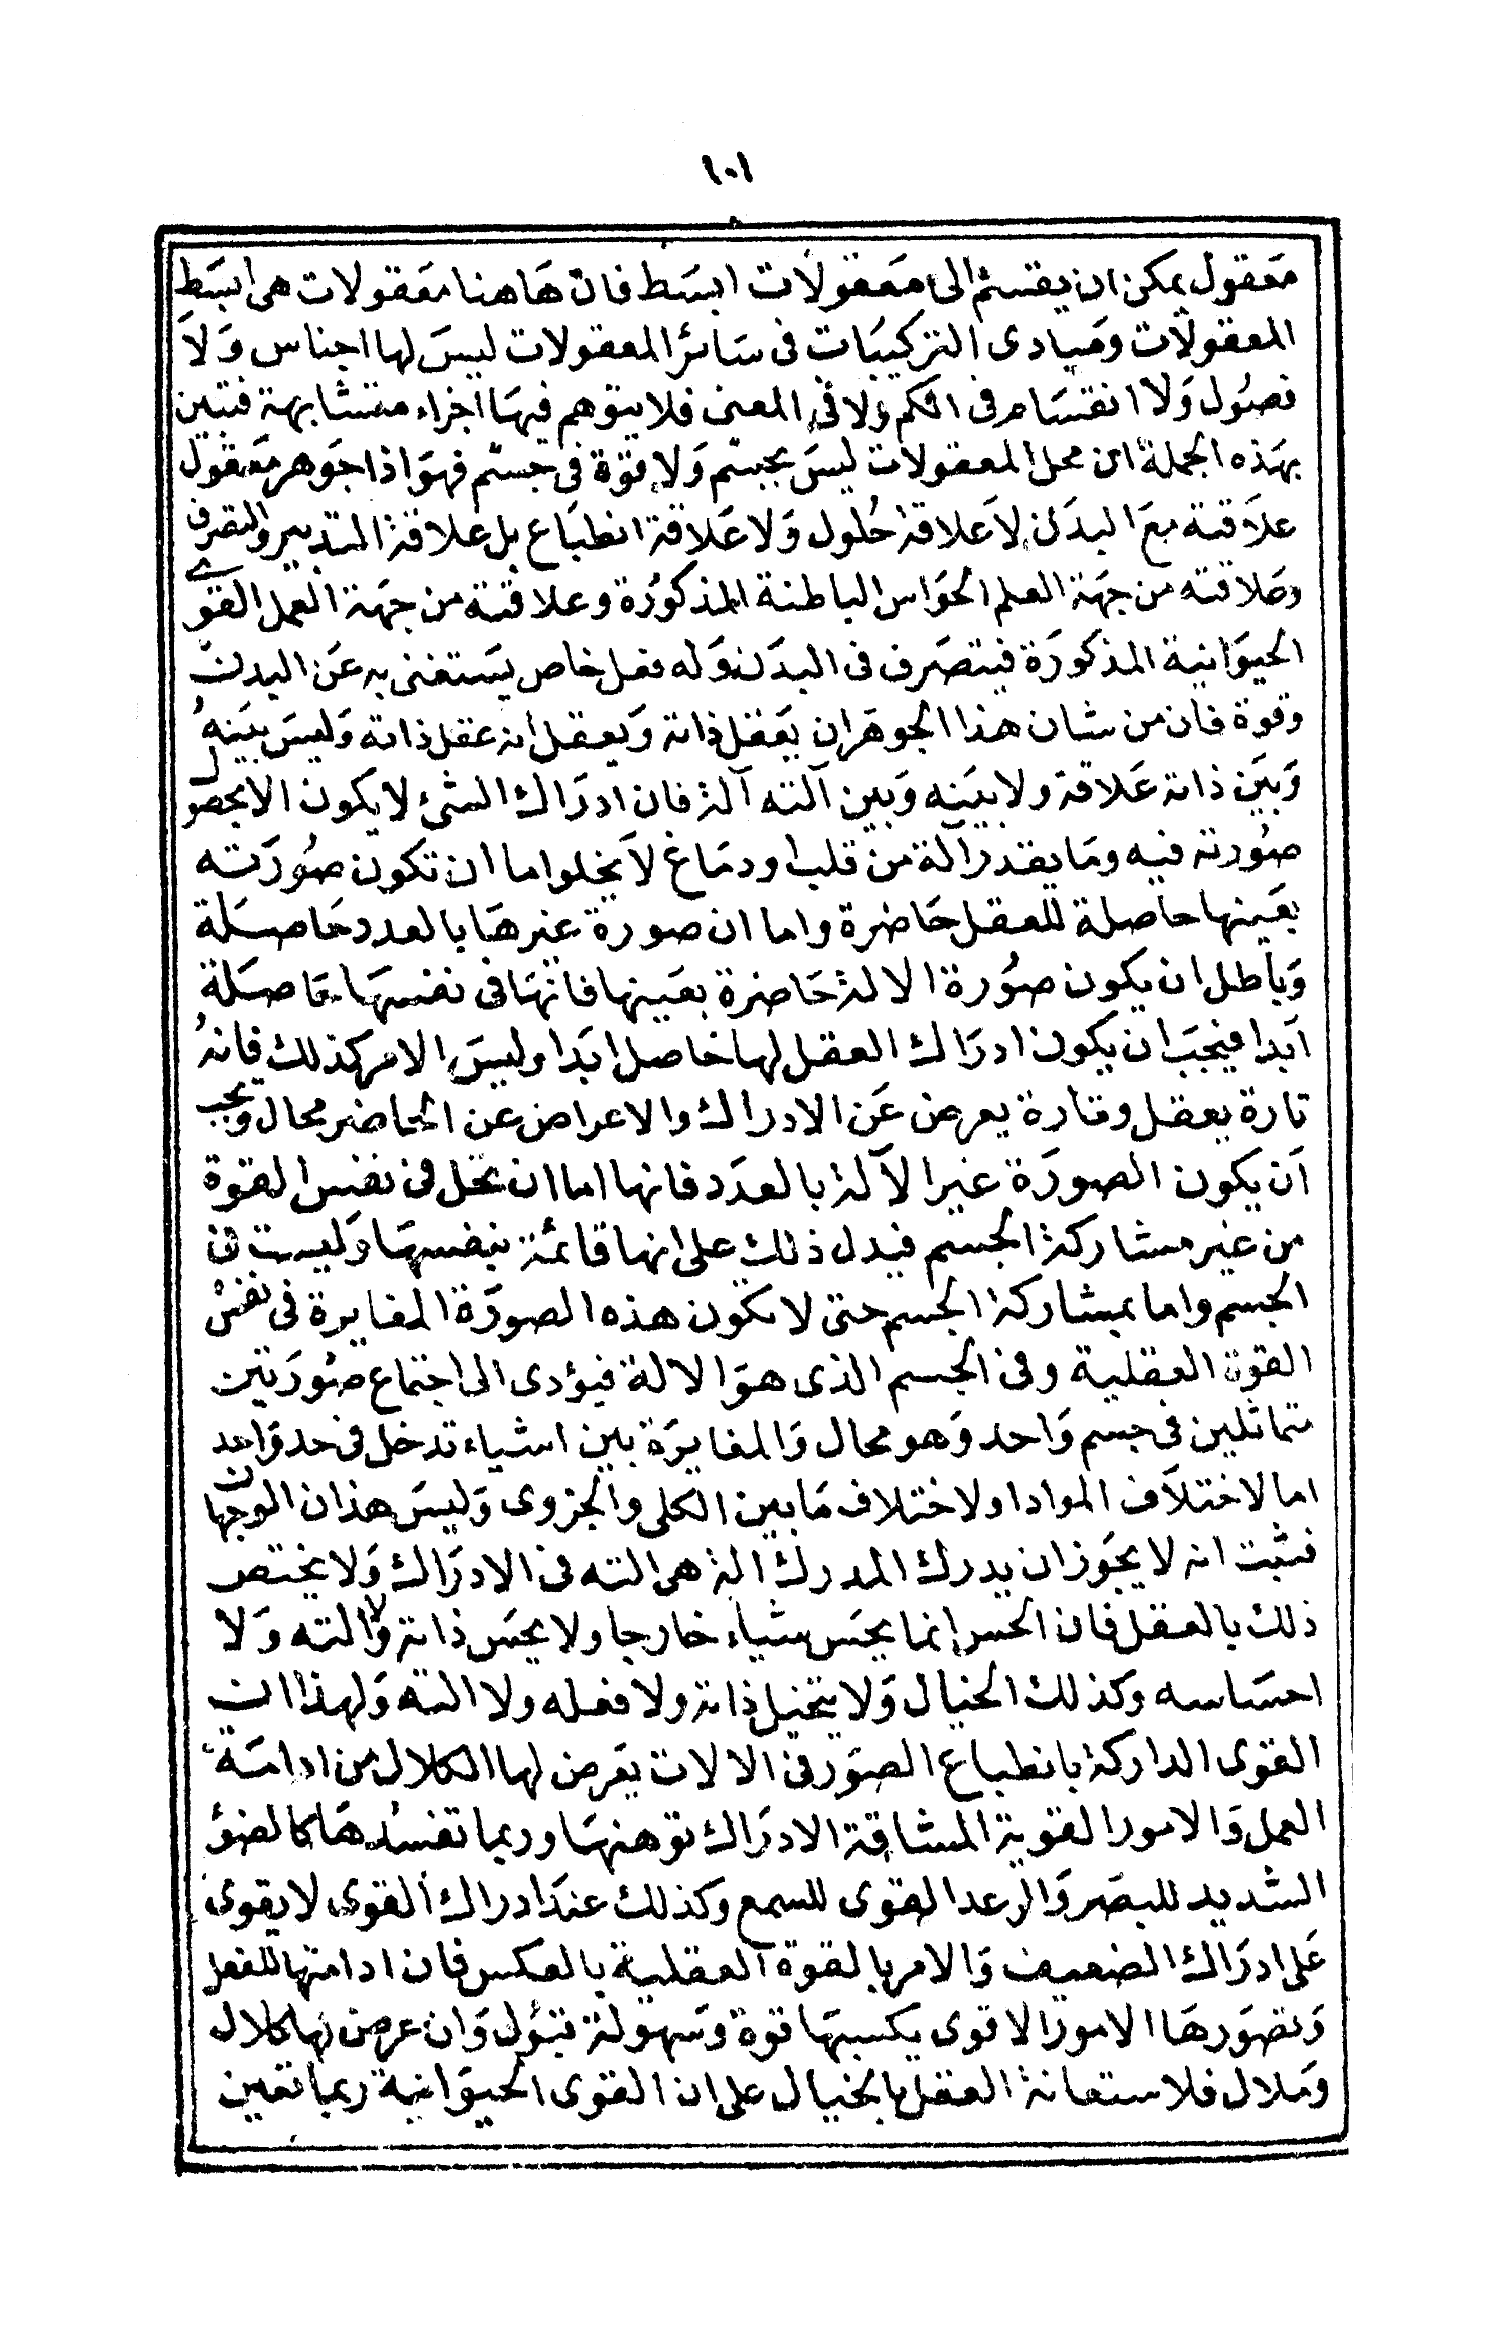 ١٠١
معقول يمكن ان يقسم الى معقولات ابسط فان هاهنا معقولات هى ابسط
المعقولات ومبادى التركيبات فى سائر المعقولات ليس لها اجناس ولا
فصول ولا انقسام فى الكم ولا فى المعنى فلا يتوهم فيها اجزاء متشابهة فتبين
بهذه الجملة ان محل المعقولات ليس بجسم ولا قوة فى جسم فهو اذا جوهر معقول
علاقته مع البدن لا علاقة حلول ولا علاقة انطباع بل علاقة التدبير والتصرف
وعلاقته من جهة العلم الحواس الباطنة المذكورة وعلاقته من جهة العمل القوى
الحيوانية المذكورة فيتصرف فى البدن وله فعل خاص يستغنى به عن البدن
وقوة فان من شان هذا الجوهر ان يعقل ذاته ويعقل انه عقل ذاته وليس بينه
وبين ذاته علاقة ولا بينه وبين آلته آلة فان ادراك الشئ لا يكون الا بحصول
صورته فيه وما يقدر آلة من قلب او دماغ لا يخلوا ما ان تكون صورته
بعينها حاصلة للعقل حاضرة واما ان صورة غيرها بالعدد حاصلة
وباطل ان يكون صورة الالة حاضرة بعينها فانها فى نفسها حاصلة
ابدا فيجب ان يكون ادراك العقل لها حاصل ابدا وليس الامر كذلك فانه
تارة يعقل وتارة يعرض عن الادراك والاعراض عن الحاضر محال ويجب
ان يكون الصورة غير الآلة بالعدد فانها اما ان تحل فى نفس القوة
من غير مشاركة الجسم فيدل ذلك على انها قائمة بنفسها وليست فى
الجسم واما بمشاركة الجسم حتى لا تكون هذه الصورة المغايرة فى نفس
القوة العقلية وفى الجسم الذى هو الالة فيؤدى الى اجتماع صورتين
متماثلين فى جسم واحد وهو محال والمغايرة بين اشياء تدخل فى حد واحد
اما لاختلاف المواد او لاختلاف ما بين الكلى والجزوى وليس هذان الوجهان
فثبت انه لا يجوز ان يدرك المدرك الة هى الته فى الادراك ولا يختص
ذلك بالعقل فان الحس انما يحس شياء خارجا ولا يحس ذاته ولا الته ولا
احساسه وكذلك الخيال ولا يتخيل ذاته ولا فعله ولا الته ولهذا ان
القوى الداركة بانطباع الصور فى الالات يعرض لها الكلال من ادامة
العمل والامور القوية المشاقة الادراك توهنها وربما تفسدها كالضؤ
الشديد للبصر والرعد القوى للسمع وكذلك عند ادراك القوى لا يقوى
على ادراك الضعيف والامر بالقوة العقلية بالعكس فان ادامتها للفعل
وتصورها الامور الاقوى يكسبها قوة وسهولة قبول وان عرض لها كلال
وملال فلاستعانة العقل بالخيال على ان القوى الحيوانية ربما تعين